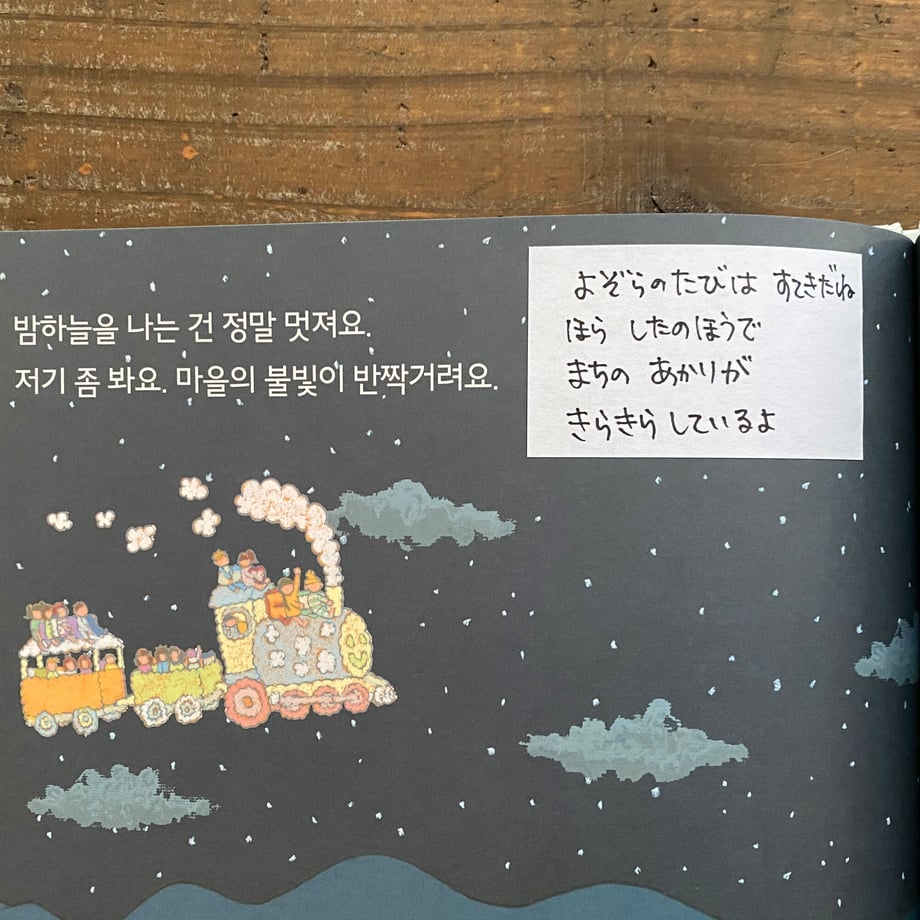 밤하늘을 나는 건 정말 멋져요.
저기 좀 봐요. 마을의 불빛이 반짝거려요.
よぞらのたびは すてきだね
ほら したのほうで
まちの あかりが
きらきら しているよ